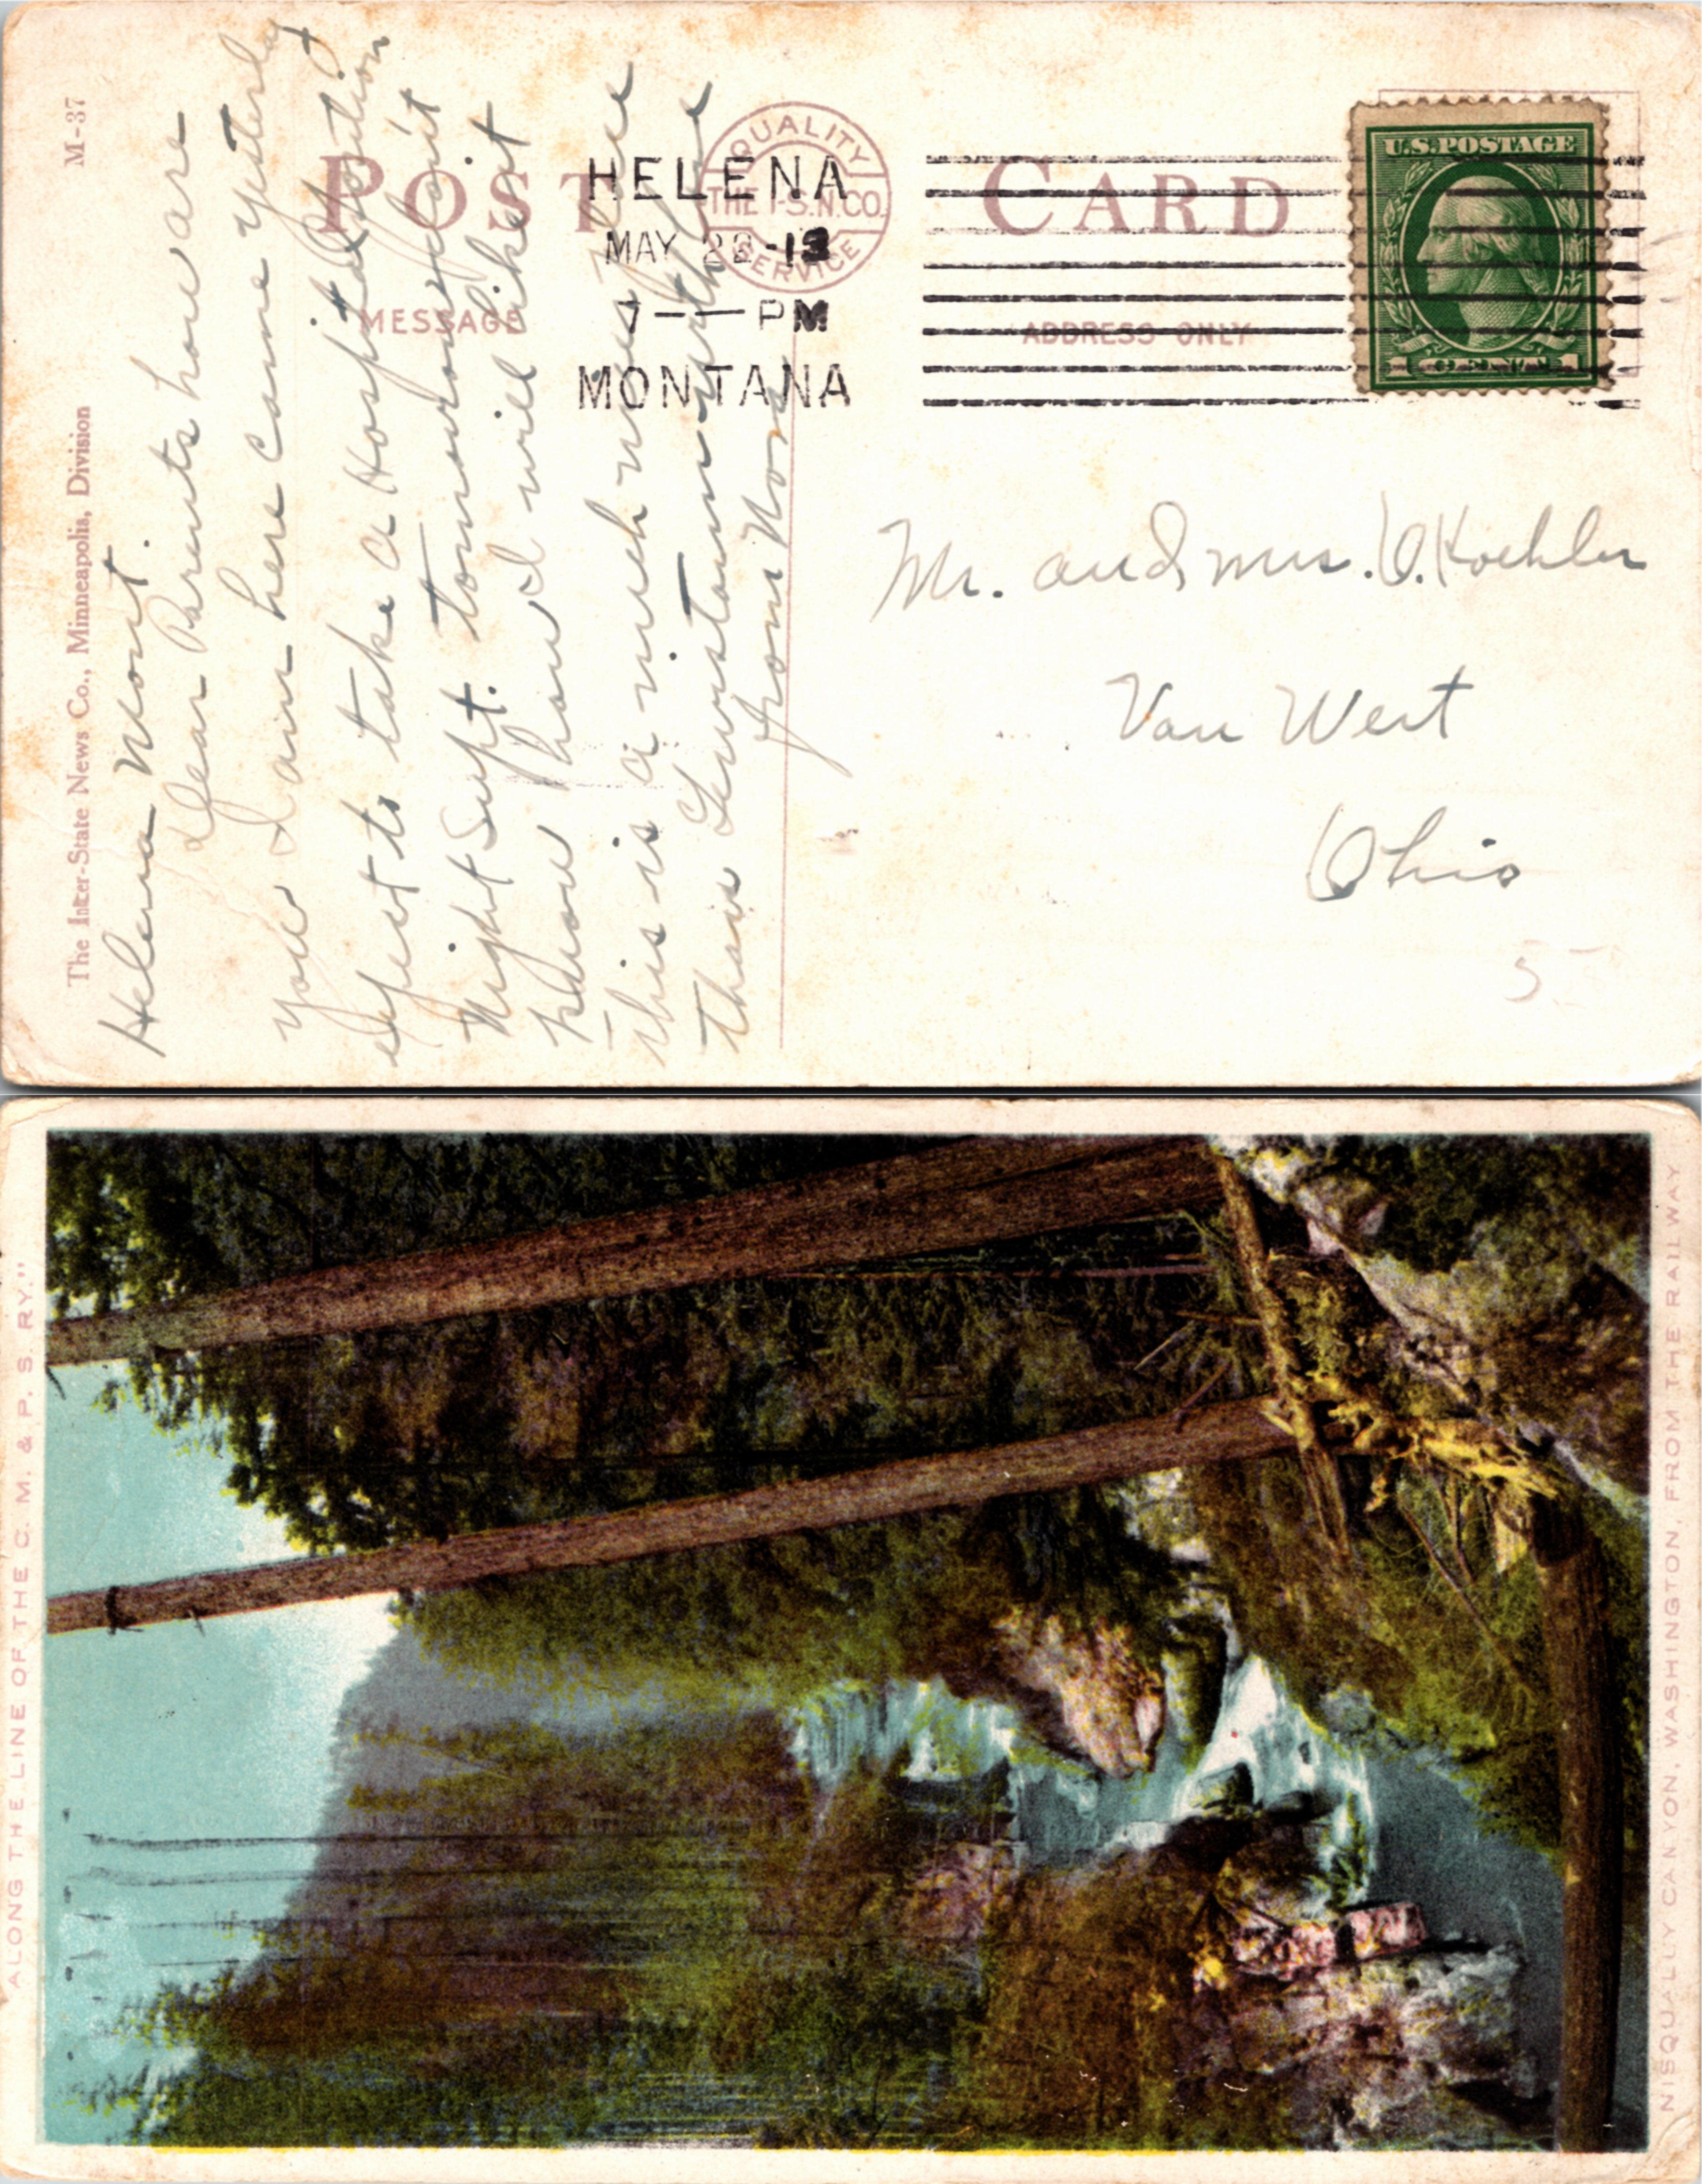 The Inter-State News Co., Minneapolis, Division
M-37
POST CARD
QUALITY
THE I-S.N.CO.
SERVICE
MESSAGE
ADDRESS ONLY
HELENA
MAY 22-13
7-- PM
MONTANA
U.S. POSTAGE
1 CENT 1
Helena Mont.
Dear Parents how are
you I am here came yesterday
expect to take a Hospital position
Night Supt. tomorrow don't
know how I will like it
this is a much nicer place
than Lewistown
from Nora
Mr. and Mrs. O. Koehler
Van Wert
Ohio
5
"ALONG THE LINE OF THE C. M. & P. S. RY."
NISQUALLY CANYON, WASHINGTON, FROM THE RAILWAY